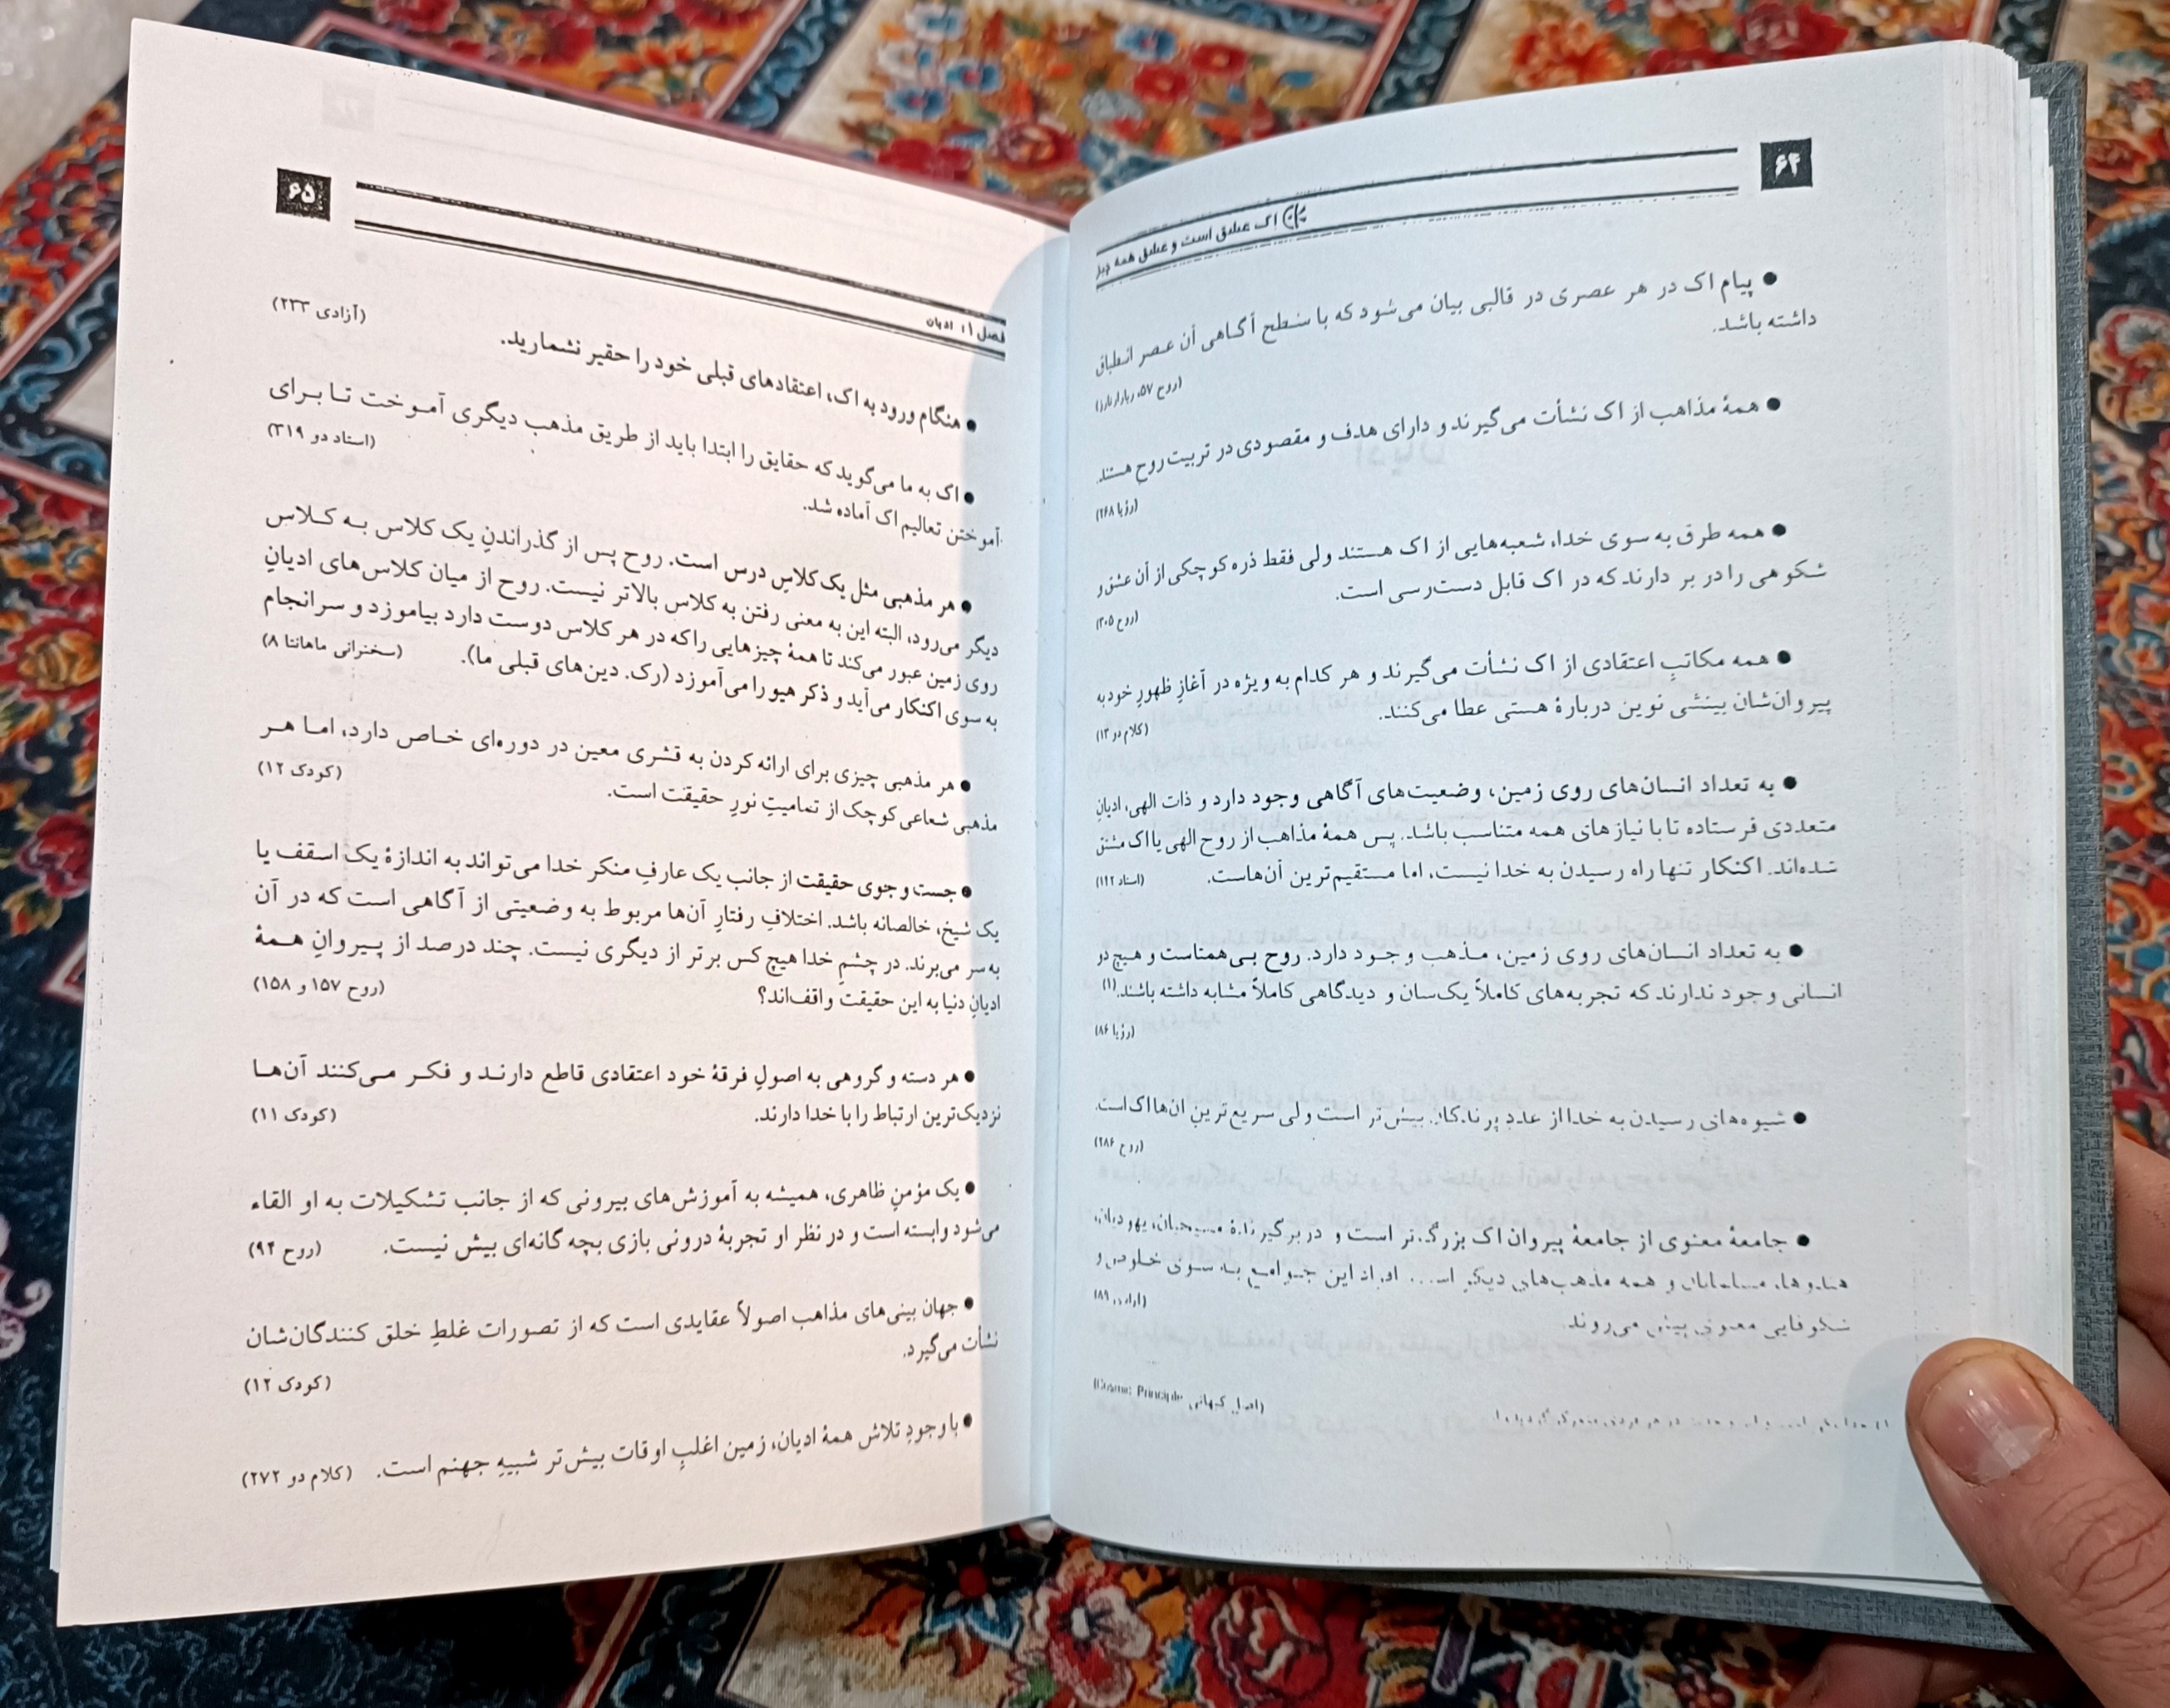 ۶۴
اک عشق است و عشق همه چیز
● پیام اک در هر عصری در قالبی بیان می‌شود که با سطح آگاهی آن عصر انطباق
داشته باشد.
(روح ۵۷،
● همهٔ مذاهب از اک نشأت می‌گیرند و دارای هدف و مقصودی در تربیت روح هستند.
(رؤیا ۲۶۸)
● همه طرق به سوی خدا، شعبه‌هایی از اک هستند ولی فقط ذره کوچکی از آن عشق و
شکوهی را در بر دارند که در اک قابل دست‌رسی است.
(روح ۲۰۵)
● همه مکاتبِ اعتقادی از اک نشأت می‌گیرند و هر کدام به ویژه در آغازِ ظهورِ خود به
پیروان‌شان بینشی نوین دربارهٔ هستی عطا می‌کنند.
(کلام دو ۱۳)
● به تعداد انسان‌های روی زمین، وضعیت‌های آگاهی وجود دارد و ذات الهی، ادیانِ
متعددی فرستاده تا با نیازهای همه متناسب باشد. پس همهٔ مذاهب از روح الهی یا اک مشتق
شده‌اند. اکنکار تنها راه رسیدن به خدا نیست، اما مستقیم‌ترین آن‌هاست.
(استاد ۱۱۲)
● به تعداد انسان‌های روی زمین، مذهب وجود دارد. روح بی‌همتاست و هیچ دو
انسانی وجود ندارند که تجربه‌های کاملاً یک‌سان و دیدگاهی کاملاً مشابه داشته باشند.(۱)
(رؤیا ۸۶)
● شیوه‌های رسیدن به خدا از عدد بیش‌تر است ولی سریع‌ترین آن‌ها اک است.
(روح ۲۸۶)
● جامعهٔ معنوی از جامعهٔ پیروان اک بزرگ‌تر است و در برگیرندهٔ مسیحیان، یهودیان،
هندوها، مسلمانان و همه مذهب‌های دیگر این جوامع به سوی خلوص و
شکوفایی معنوی پیش می‌روند.
(اصل کیهانی Cosmic Principle)
۶۵
فصل ۱: ادیان
● هنگام ورود به اک، اعتقادهای قبلی خود را حقیر نشمارید.
(آزادی ۲۳۳)
● اک به ما می‌گوید که حقایق را ابتدا باید از طریق مذهب دیگری آموخت تا برای
آموختن تعالیم اک آماده شد.
(استاد دو ۳۱۹)
● هر مذهبی مثل یک کلاسِ درس است. روح پس از گذراندنِ یک کلاس به کلاس
دیگر می‌رود، البته این به معنی رفتن به کلاس بالاتر نیست. روح از میان کلاس‌های ادیانِ
روی زمین عبور می‌کند تا همهٔ چیزهایی را که در هر کلاس دوست دارد بیاموزد و سرانجام
به سوی اکنکار می‌آید و ذکر هیو را می‌آموزد (رک. دین‌های قبلی ما).
(سخنرانی ماهانتا ۸)
● هر مذهبی چیزی برای ارائه کردن به قشری معین در دوره‌ای خاص دارد، اما هر
مذهبی شعاعی کوچک از تمامیتِ نورِ حقیقت است.
(کودک ۱۲)
● جست و جوی حقیقت از جانب یک عارفِ منکر خدا می‌تواند به اندازهٔ یک اسقف یا
یک شیخ، خالصانه باشد. اختلافِ رفتارِ آن‌ها مربوط به وضعیتی از آگاهی است که در آن
به سر می‌برند. در چشمِ خدا هیچ کس برتر از دیگری نیست. چند درصد از پیروانِ همهٔ
ادیانِ دنیا به این حقیقت واقف‌اند؟
(روح ۱۵۷ و ۱۵۸)
● هر دسته و گروهی به اصولِ فرقهٔ خود اعتقادی قاطع دارند و فکر می‌کنند آن‌ها
نزدیک‌ترین ارتباط را با خدا دارند.
(کودک ۱۱)
● یک مؤمنِ ظاهری، همیشه به آموزش‌های بیرونی که از جانب تشکیلات به او القاء
می‌شود وابسته است و در نظر او تجربهٔ درونی بازی بچه گانه‌ای بیش نیست.
(روح ۹۴)
● جهان بینی‌های مذاهب اصولاً عقایدی است که از تصورات غلطِ خلق کنندگان‌شان
نشأت می‌گیرد.
(کودک ۱۲)
● با وجودِ تلاش همهٔ ادیان، زمین اغلبِ اوقات بیش‌تر شبیهِ جهنم است.
(کلام دو ۲۷۲)